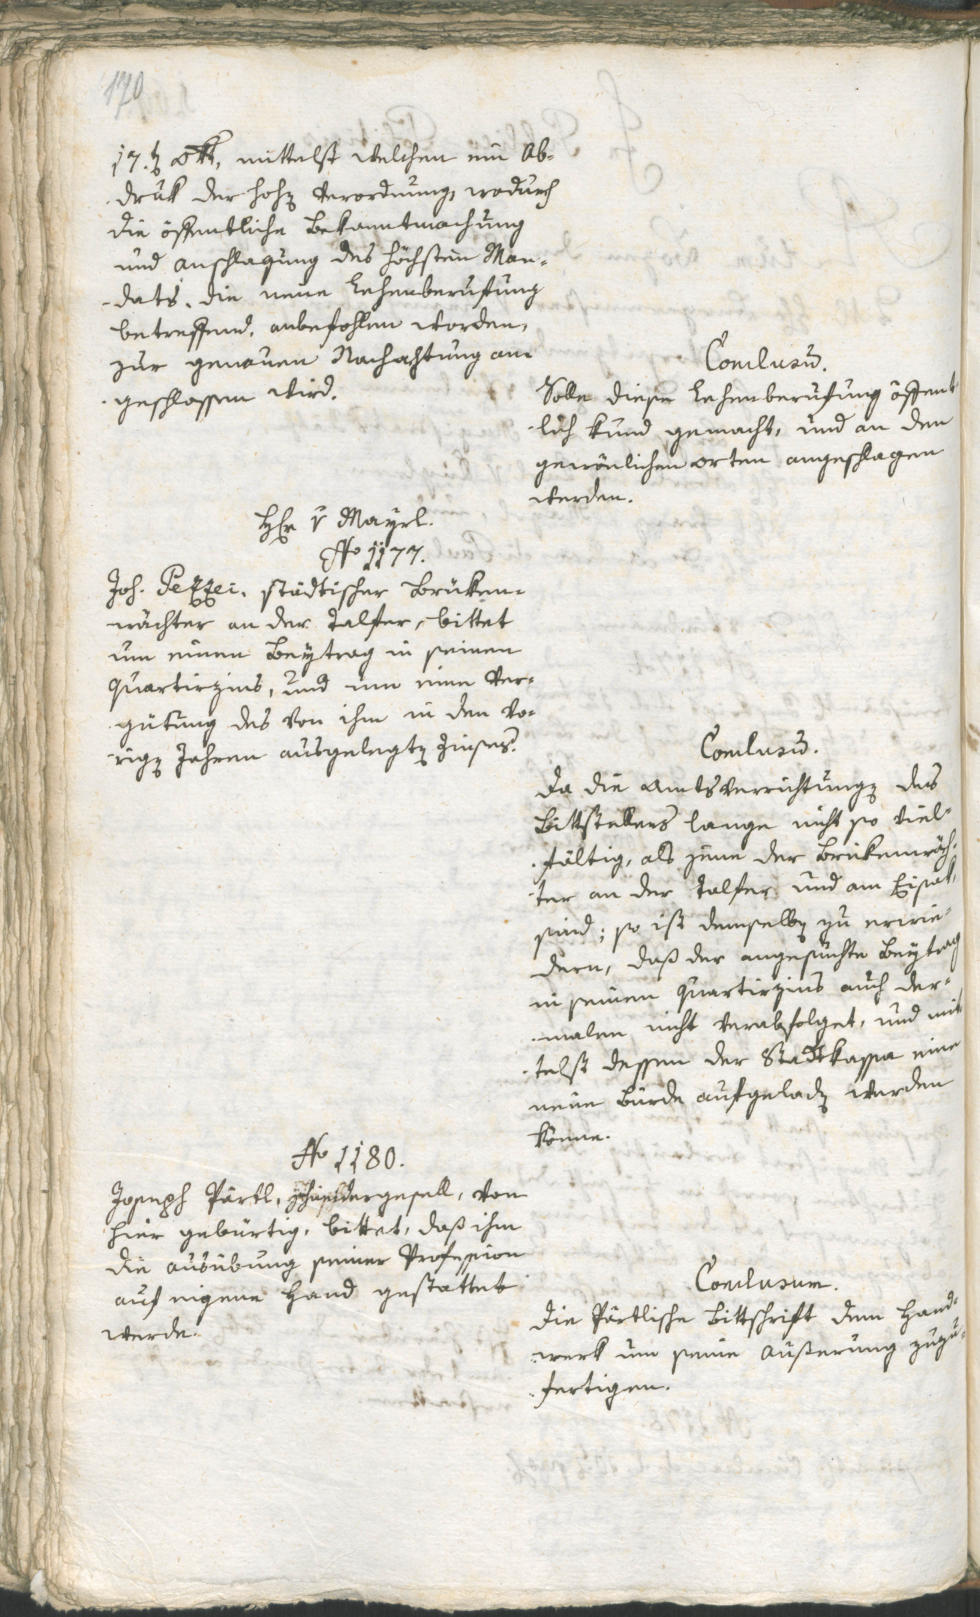 170
17.t 8br, mittelst welchen ein Ab-
druk der hohen Verordnung, wodurch
die öffentliche Bekanntmachung
und Anschlagung des höchsten Man-
dats, die neue Lehenberufung
betreffend, anbefohlen worden,
zur genauen Nachachtung an-
geschlossen wird.
Conclusum.
Solle diese Lehenberufung öffent-
lich kund gemacht, und an den
gewönlichen Orten angeschlagen
werden.
Hr. v Mayrl.
No 1177.
Joh. Pezzei, städtischer Brüken-
wächter an der Talfer, bittet
um einen Beytrag in seinen
Quartirzins, und um eine Ver-
gütung des von ihm in den vo-
rigen Jahren ausgelegten Zinses.
Conclusum.
Da die Amtsverrichtungen des
Bittstellers lange nicht so viel-
fältig, als jene der Brükenwäch-
ter an der Talfer und am Eisak
sind; so ist demselben zu erwie-
dern, daß der angesuchte Beytrag
in seinen Quartirzins auch der-
malen nicht verabfolget, und mit-
telst dessen der Stadtkassa eine
neue Bürde aufgeladen werden
könne.
No 1180.
Joseph Pärtl, Schneidergesell, von
hier gebürtig, bittet, daß ihm
die Ausübung seiner Profession
auf eigene Hand gestattet
werde.
Conclusum.
Die Pärtlische Bittschrift dem Hand-
werk um seine Äußerung zuzu-
fertigen.